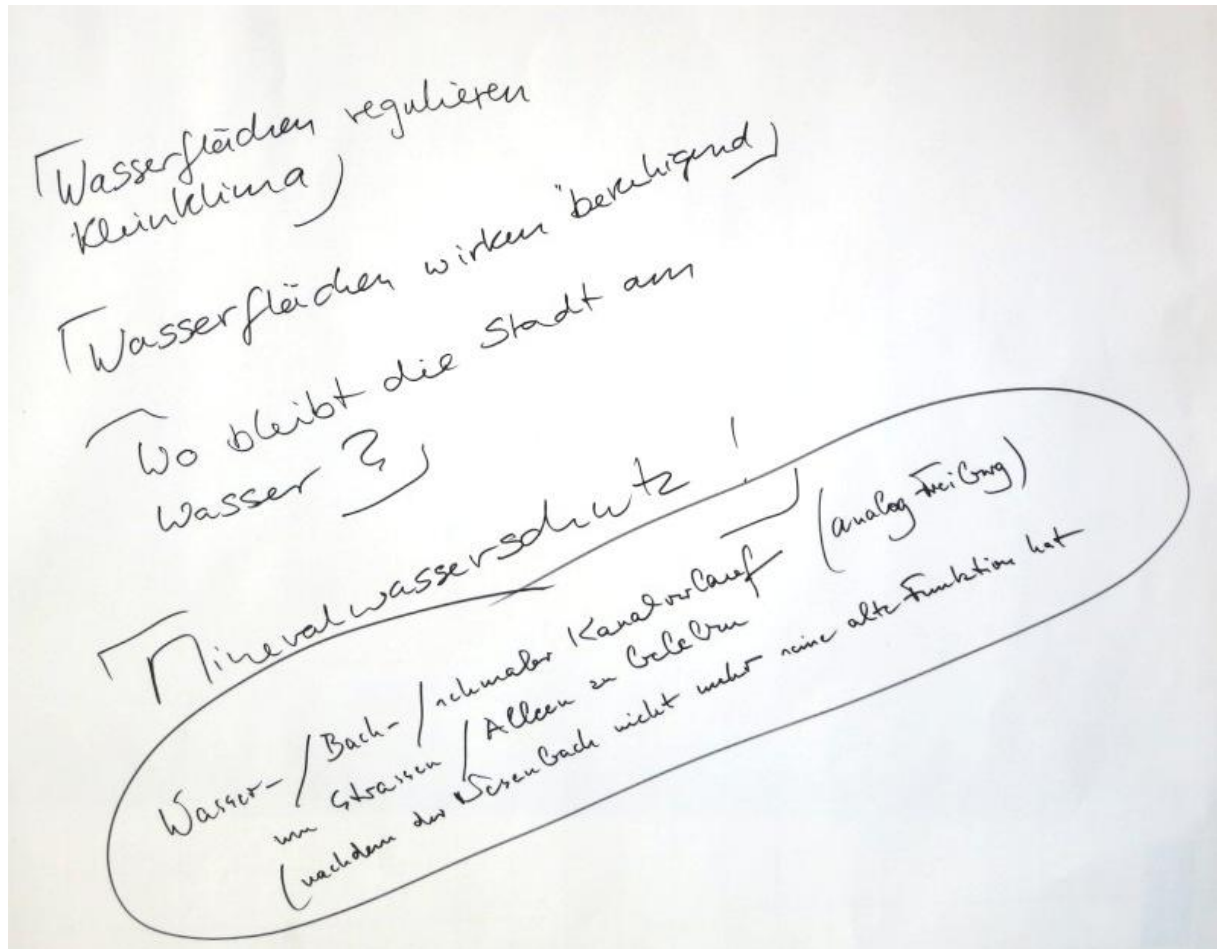 Wasserflächen regulieren
Kleinklima
Wasserflächen wirken "beruhigend
Wo bleibt die Stadt am
Wasser ?
Mineralwasserschutz !
Wasser- / Bach- / schmaler Kanalverlauf (analog Freiburg)
um Strassen / Alleen zu beleben
(nachdem der Nesenbach nicht mehr seine alte Funktion hat